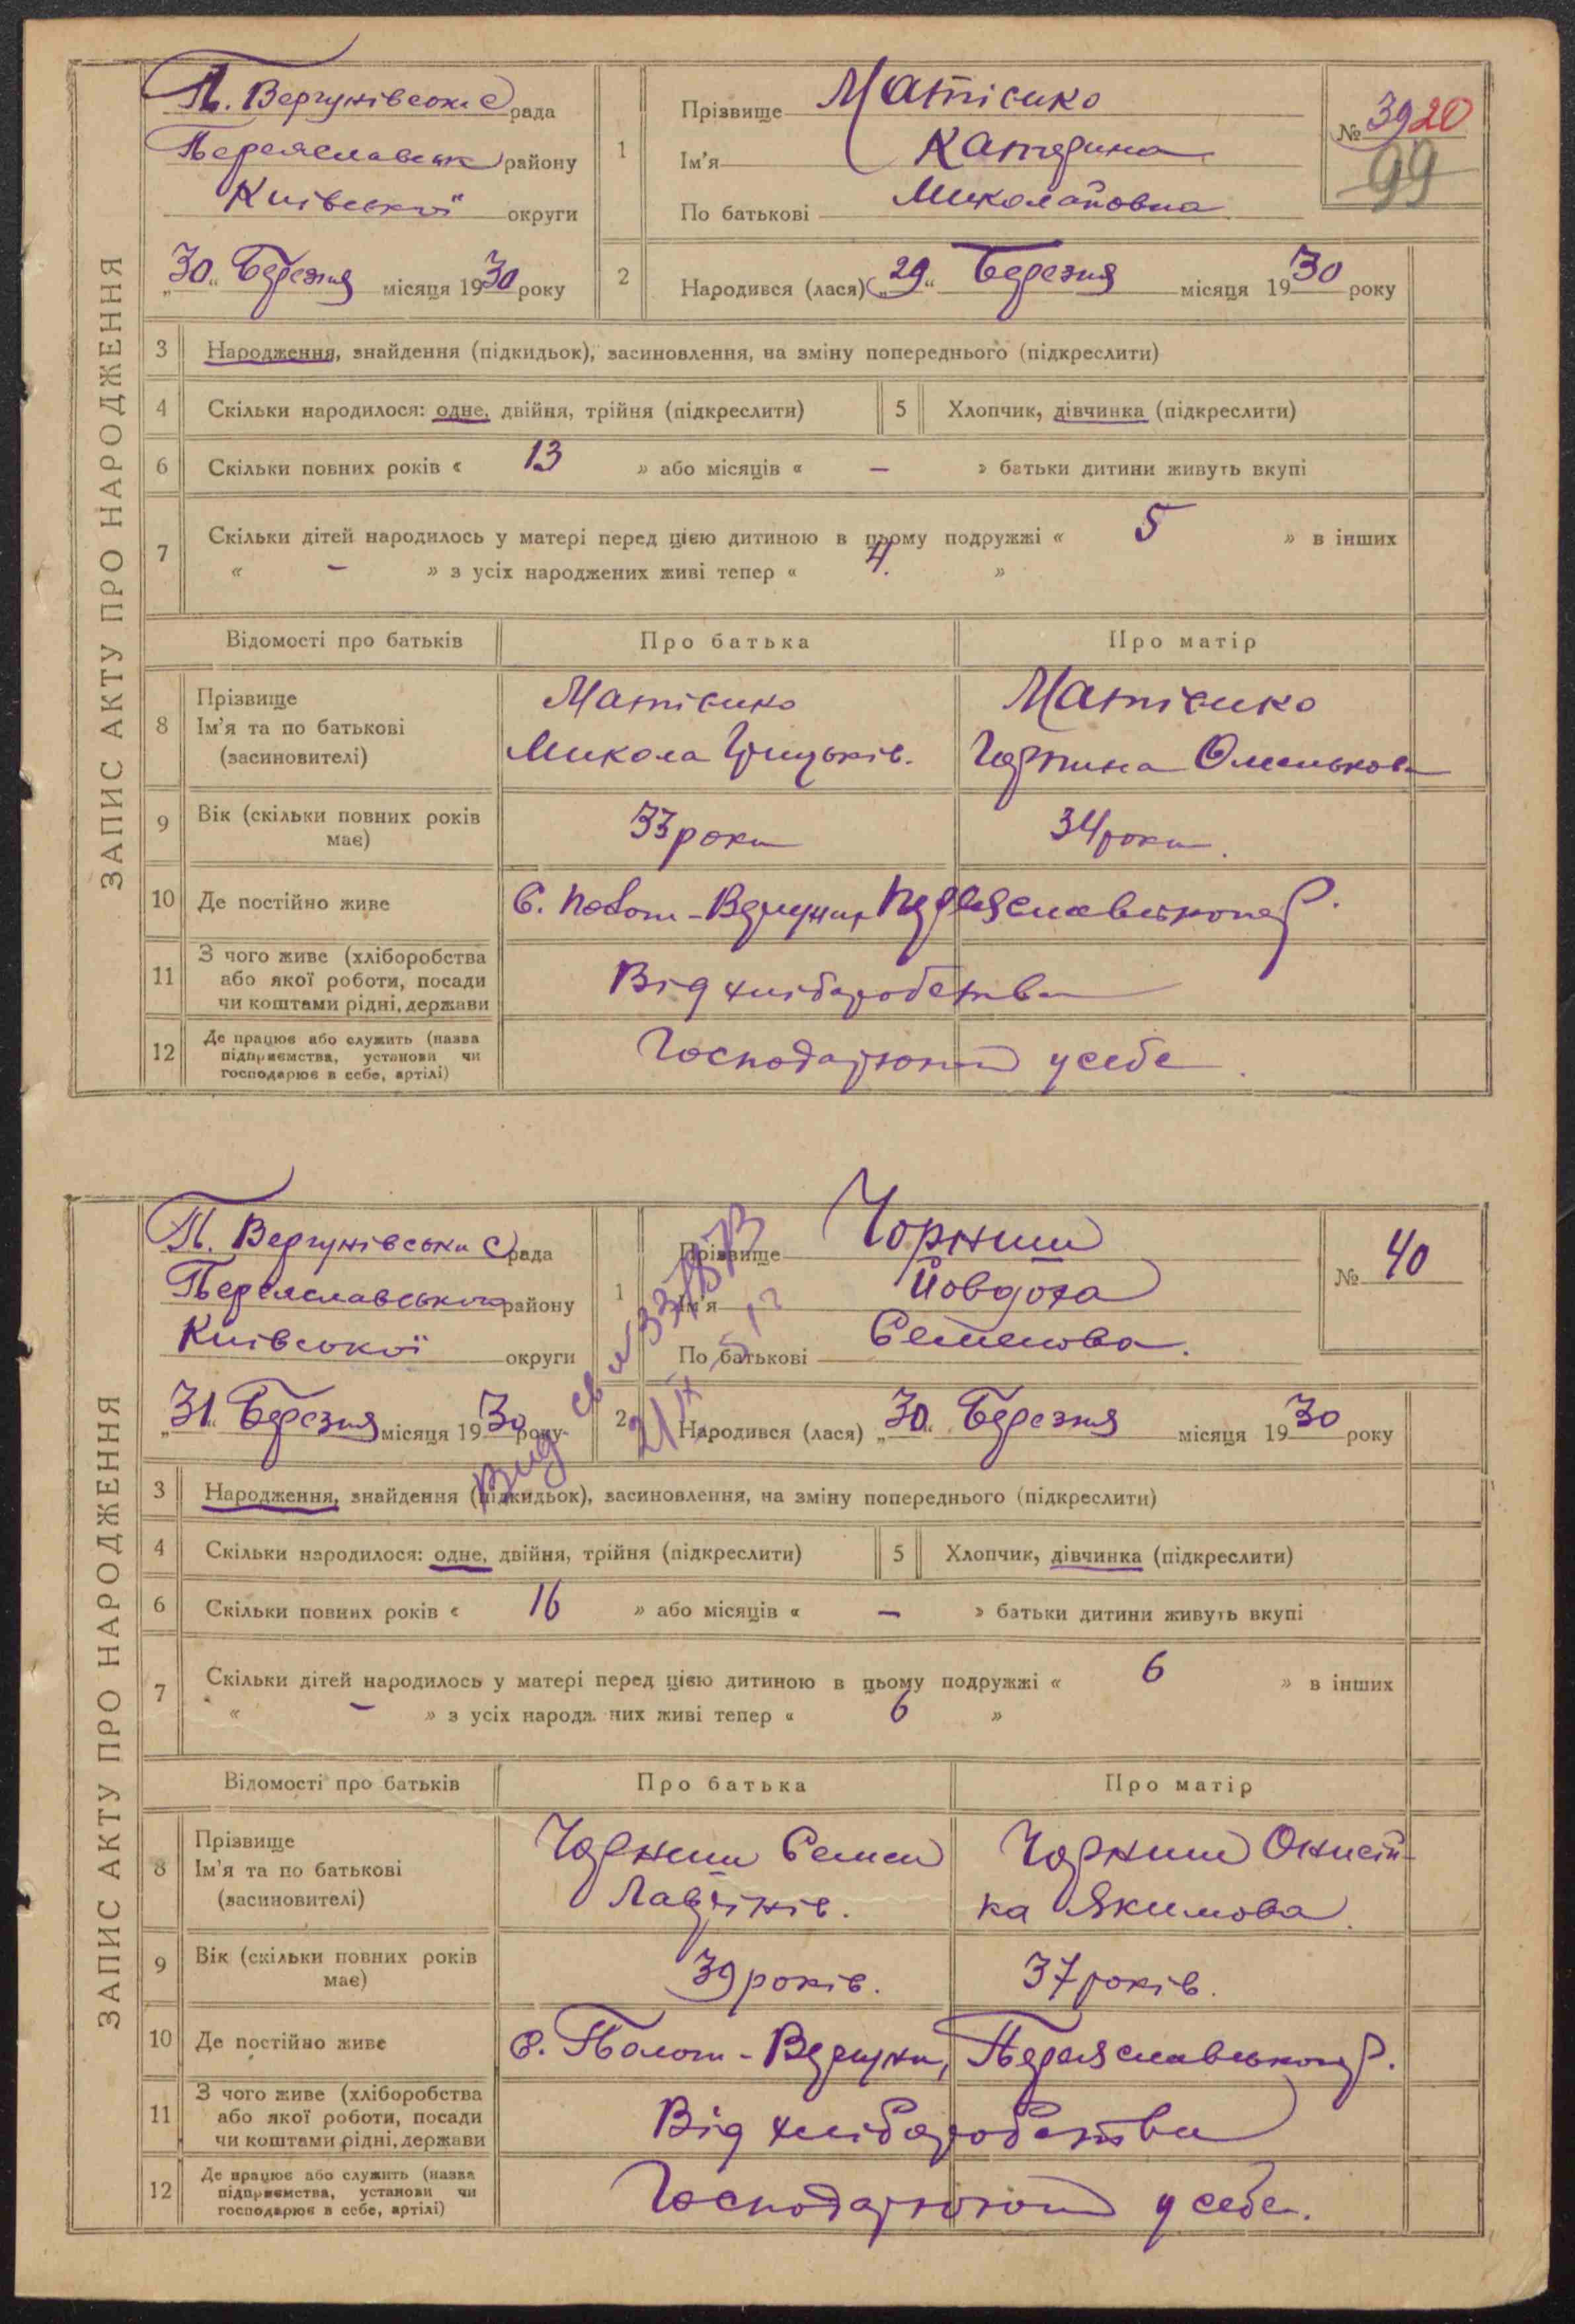 ЗАПИС АКТУ ПРО НАРОДЖЕННЯ
П. Вергунівськ. С рада
Переяславськ району
Київської округи
„30“ Березня місяця 1930 року
1 Прізвище Матісико
Ім'я Катерина
По батькові Миколайовна
№ 39 20
99
2 Народився (лася) „29“ Березня місяця 1930 року
3 Народження, знайдення (підкидьок), засиновлення, на зміну попереднього (підкреслити)
4 Скільки народилося: одне, двійня, трійня (підкреслити) 5 Хлопчик, дівчинка (підкреслити)
6 Скільки повних років « 13 » або місяців « — » батьки дитини живуть вкупі
7 Скільки дітей народилось у матері перед цією дитиною в цьому подружжі « 5 » в інших
« – » з усіх народжених живі тепер « 4. »
Відомості про батьків Про батька Про матір
8 Прізвище
Ім'я та по батькові
(засиновителі)
Матісико
Микола Грицьків.
Матісико
Горпина Оменькова
9 Вік (скільки повних років
має)
33 роки 34 роки.
10 Де постійно живе С. -Вергуни, Переяславського р.
11 З чого живе (хліборобства
або якої роботи, посади
чи коштами рідні, держави
Від хліборобства
12 Де працює або служить (назва
підприємства, установи чи
господарює в себе, артілі)
Господарюють у себе.
ЗАПИС АКТУ ПРО НАРОДЖЕННЯ
П. Вергунівськи С рада
Переяславського району
Київської округи
„31“ Березня місяця 1930 року
1 Прізвище Чорниш
Ім'я Йовдоха
По батькові Семенова.
№ 40
2 Народився (лася) „30“ Березня місяця 1930 року
Вид св
3 Народження, знайдення (підкидьок), засиновлення, на зміну попереднього (підкреслити)
4 Скільки народилося: одне, двійня, трійня (підкреслити) 5 Хлопчик, дівчинка (підкреслити)
6 Скільки повних років « 16 » або місяців « — » батьки дитини живуть вкупі
7 Скільки дітей народилось у матері перед цією дитиною в цьому подружжі « 6 » в інших
« – » з усіх народж. них живі тепер « 6 »
Відомості про батьків Про батька Про матір
8 Прізвище
Ім'я та по батькові
(засиновителі)
Чорниш Семен
Лаврінів.
Чорниш Онисій-
ка Якимова.
9 Вік (скільки повних років
має)
39 років. 37 років.
10 Де постійно живе С. Полог-Вергуни, Переяславського р.
11 З чого живе (хліборобства
або якої роботи, посади
чи коштами рідні, держави
Від хліборобства
12 Де працює або служить (назва
підприємства, установи чи
господарює в себе, артілі)
Господарюють у себе.